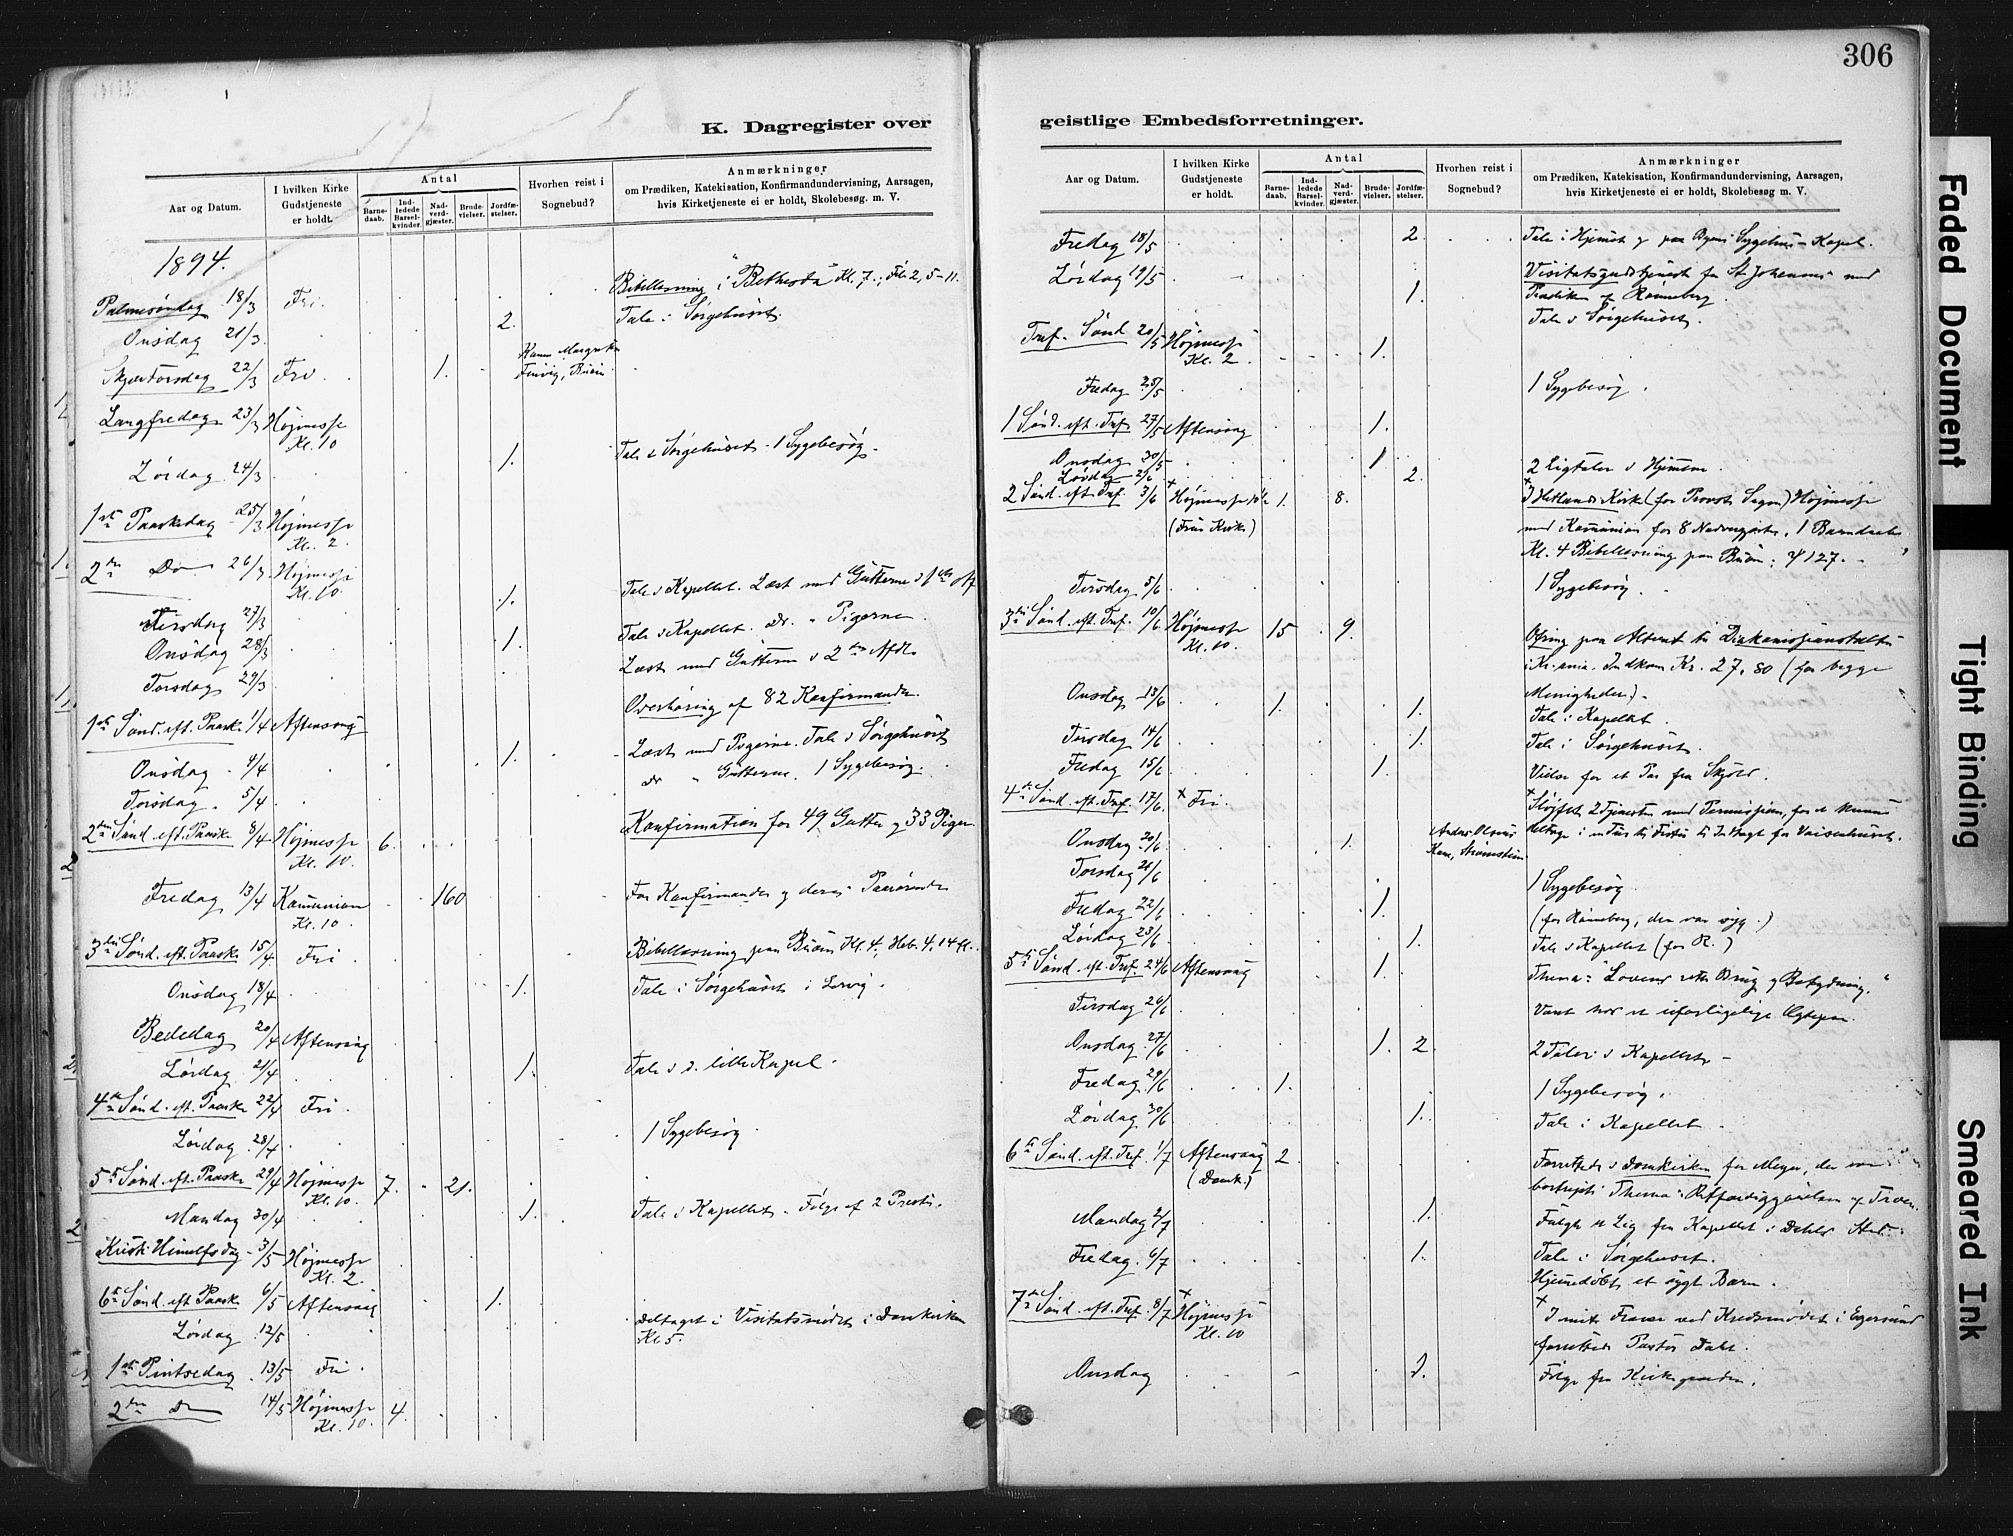 306
K. Dagregister over
geistlige Embedsforretninger.
Aar og Datum.
I hvilken Kirke Gudstjeneste er holdt.
Antal
Barnedaab.
Indledede Barselkvinder.
Nadverdgjæster.
Brudevielser.
Jordfæstelser.
Hvorhen reist i Sognebud?
Anmærkninger
om Prædiken, Katekisation, Konfirmandundervisning, Aarsagen,
hvis Kirketjeneste ei er holdt, Skolebesøg. m. V.
1894.
Palmesøndag 18/3 Fri. Bibellæsning i "Bethesda" Kl. 7.
Onsdag 21/3. 2. Tale i Sørgehuset.
Skjærtorsdag 22/3 Fri 1.
Langfredag 23/3 Højmesse Kl. 10
Lørdag 24/3 1. Tale i Sørgehuset. 1 Sygebesøg.
1ste Paaskedag 25/3 Højmesse Kl. 2.
2den Do 26/3 Højmesse Kl. 10.
Tirsdag 27/3 1. Tale i Kapellet. Læst med Gutterne
Onsdag 28/3 1. Tale i Kapellet. Do. " Pigerne.
Torsdag 29/3 Læst med Gutterne i 2den Afdl.
1ste Sønd. eft. Paaske 1/4 Aftensang Overhøring af 82 Konfirmander.
Onsdag 4/4 1. Læst med Pigerne. Tale i Sørgehuset
Torsdag 5/4 do " Gutterne. 1 Sygebesøg.
2den Sønd. eft. Paaske 8/4 Højmesse Kl. 10. 6. Konfirmation for 49 Gutter og 33 Piger
Fredag 13/4 Kommunion Kl. 10. 160 For Konfirmander og deres Paarørende
3die Sønd. eft. Paaske 15/4 Fri Bibellæsning paa Buøen Kl. 4. Heb. 4, 14
Onsdag 18/4 1. Tale i Sørgehuset i
Bededag 20/4 Aftensang
Lørdag 21/4 1. Tale i d. lille Kapel.
4de Sønd. eft. Paaske 22/4 Fri.
Lørdag 28/4 1 Sygebesøg.
5te Sønd. eft. Paaske 29/4 Højmesse Kl. 10 7. 21.
Mandag 30/4 1. Tale i Kapellet. Følge af 2 Prester.
Kristi Himmelfsdag 3/5 Højmesse Kl. 2.
6te Sønd. eft. Paaske 6/5 Aftensang 1.
Lørdag 12/5 Deltaget i Visitatsmødet i Domkirken Kl. 5.
1ste Pintsedag 13/5 Fri.
2den Do 14/5 Højmesse Kl. 10. 4.
Aar og Datum.
I hvilken Kirke Gudstjeneste er holdt.
Antal
Barnedaab.
Indledede Barselkvinder.
Nadverdgjæster.
Brudevielser.
Jordfæstelser.
Hvorhen reist i Sognebud?
Anmærkninger
om Prædiken, Katekisation, Konfirmandundervisning, Aarsagen,
hvis Kirketjeneste ei er holdt, Skolebesøg m. V.
Fredag 18/5 2. Tale i Hjemmet og paa Byens Sygehus-Kapel.
Lørdag 19/5 1. Visitatsgudstjeneste for St Johannes med
Prædiken af Rønneberg.
Tale i Sørgehuset.
Tref. Sønd 20/5 Højmesse Kl. 2. 1.
Fredag 25/5 1 Sygebesøg.
1 Sønd. eft. Tref. 27/5 Aftensang 1.
Onsdag 30/5 1
Lørdag 2/6 2. 2 Ligtaler i Hjemmene.
2 Sønd. eft. Tref. 3/6 Højmesse (Frue Kirke) 1. 8. I Hetlands Kirke (for Provst Sagen) Højmesse
med Kommunion for 8 Nadvergjester. 1 Barnedaab
Kl. 4 Bibellæsning paa Buøen: 127.
Tirsdag 5/6 1 Sygebesøg.
3die Sønd. eft. Tref. 10/6 Højmesse Kl. 10. 15 9. Ofring paa Alteret til Diakonisseanstalten
i Kr.ania. Indkom Kr. 27,80 (for begge
Menigheder).
Onsdag 13/6 1. 1. Tale i Kapellet.
Torsdag 14/6 1. Tale i Sørgehuset.
Fredag 15/6 1. Vielse for et Par fra Skjold.
4de Sønd. eft. Tref. 17/6 Fri.
Onsdag 20/6 1.
Torsdag 21/6 1 Sygebesøg
Fredag 22/6 1. (for Rønneberg, der var syg.)
Lørdag 23/6 1. Tale i Kapellet (for R.)
5te Sønd. eft. Tref. 24/6 Aftensang 1. Thema: "Lovens rette Brug og Betydning."
Tirsdag 26/6
Onsdag 27/6 1. 2. 2 Taler i Kapellet
Fredag 29/6 1. 1 Sygebesøg.
Lørdag 30/6 1. Tale i Kapellet
6te Sønd. eft. Tref. 1/7 Aftensang (Domk.) 2 Forrettede i Domkirken for Meyer, der var
bortrejst: Thema:
Mandag 2/7 1. Fulgte et Lig fra Kapellet i Dahls Sted.
Fredag 6/7 1. Tale i Sørgehuset.
Hjemmedøbt et sygt Barn.
7de Sønd. eft. Tref. 8/7 Højmesse Kl. 10 I mit Fravær ved Kredsmødet i Egersund
forrettede Pastor Dahl.
Onsdag 2. Følge fra Kirkegaarden.
Faded Document
Tight Binding
Smeared Ink